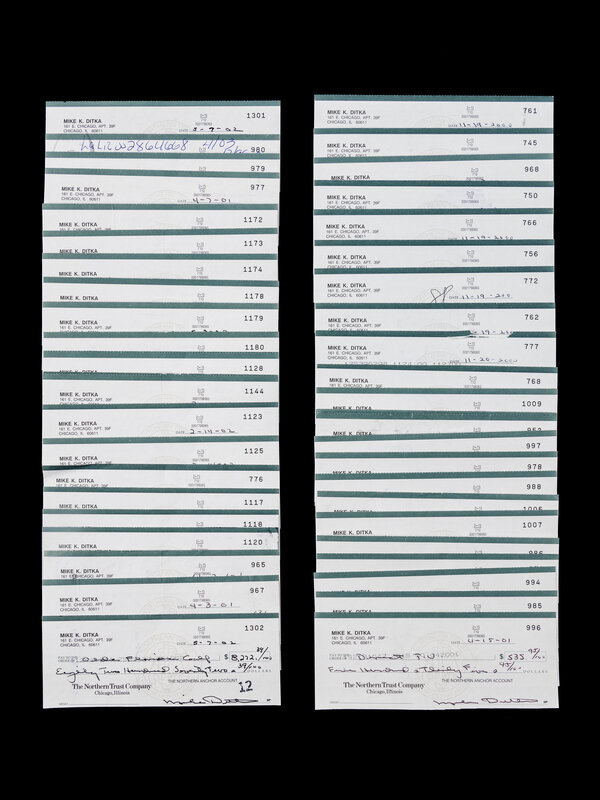 MIKE K. DITKA
161 E. CHICAGO, APT. 39F
CHICAGO, IL 60611
1301
DATE 5-7-02
980
979
MIKE K. DITKA
161 E. CHICAGO, APT. 39F
CHICAGO, IL 60611
977
DATE 4-3-01
MIKE K. DITKA
1172
MIKE K. DITKA
1173
MIKE K. DITKA
1174
MIKE K. DITKA
1178
MIKE K. DITKA
161 E. CHICAGO, APT. 39F
1179
1180
MIKE K. DITKA
1128
MIKE K. DITKA
1144
MIKE K. DITKA
161 E. CHICAGO, APT. 39F
CHICAGO, IL 60611
1123
DATE 2-14-02
MIKE K. DITKA
1125
MIKE K. DITKA
161 E. CHICAGO, APT. 39F
776
MIKE K. DITKA
1117
1118
MIKE K. DITKA
1120
MIKE K. DITKA
161 E. CHICAGO, APT. 39F
965
MIKE K. DITKA
161 E. CHICAGO, APT. 39F
CHICAGO, IL 60611
967
DATE 4-3-01
MIKE K. DITKA
161 E. CHICAGO, APT. 39F
CHICAGO, IL 60611
1302
5-7-02
$ 8,272. 39/100
Eighty Two Hundred Seventy Two & 39/100 DOLLARS
The Northern Trust Company
Chicago, Illinois
THE NORTHERN ANCHOR ACCOUNT
12
Mike Ditka
MIKE K. DITKA
161 E. CHICAGO, APT. 39F
CHICAGO, IL 60611
761
DATE 11-19-2000
MIKE K. DITKA
161 E. CHICAGO, APT. 39F
745
MIKE K. DITKA
968
MIKE K. DITKA
161 E. CHICAGO, APT. 39F
750
MIKE K. DITKA
161 E. CHICAGO, APT. 39F
CHICAGO, IL 60611
766
DATE 11-19-2000
MIKE K. DITKA
161 E. CHICAGO, APT. 39F
756
MIKE K. DITKA
161 E. CHICAGO, APT. 39F
CHICAGO, IL 60611
772
DATE 11-19-200
MIKE K. DITKA
161 E. CHICAGO, APT. 39F
762
MIKE K. DITKA
161 E. CHICAGO, APT. 39F
CHICAGO, IL 60611
777
DATE 11-20-2000
MIKE K. DITKA
768
MIKE K. DITKA
161 E. CHICAGO, APT. 39F
1009
MIKE K. DITKA
MIKE K. DITKA
997
MIKE K. DITKA
978
MIKE K. DITKA
988
MIKE K. DITKA
1007
MIKE K. DITKA
994
MIKE K. DITKA
985
MIKE K. DITKA
161 E. CHICAGO, APT. 39F
CHICAGO, IL 60611
996
DATE 4-15-01
$ 535 45/100
DOLLARS
The Northern Trust Company
Chicago, Illinois
THE NORTHERN ANCHOR ACCOUNT
Mike Ditka